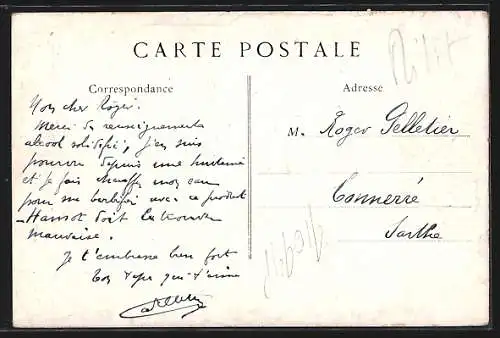 CARTE POSTALE
Correspondance
Mon cher Roger.
Merci des renseignements
alcool solidifié, j'en suis
pourvu depuis une
et je fais chauffer mon eau
pour me avec ce produit
Hansot doit la trouver
mauvaise.
Je t'embrasse bien fort
Ton qui t'aime
Adresse
M. Roger Pelletier
Connerré
Sarthe